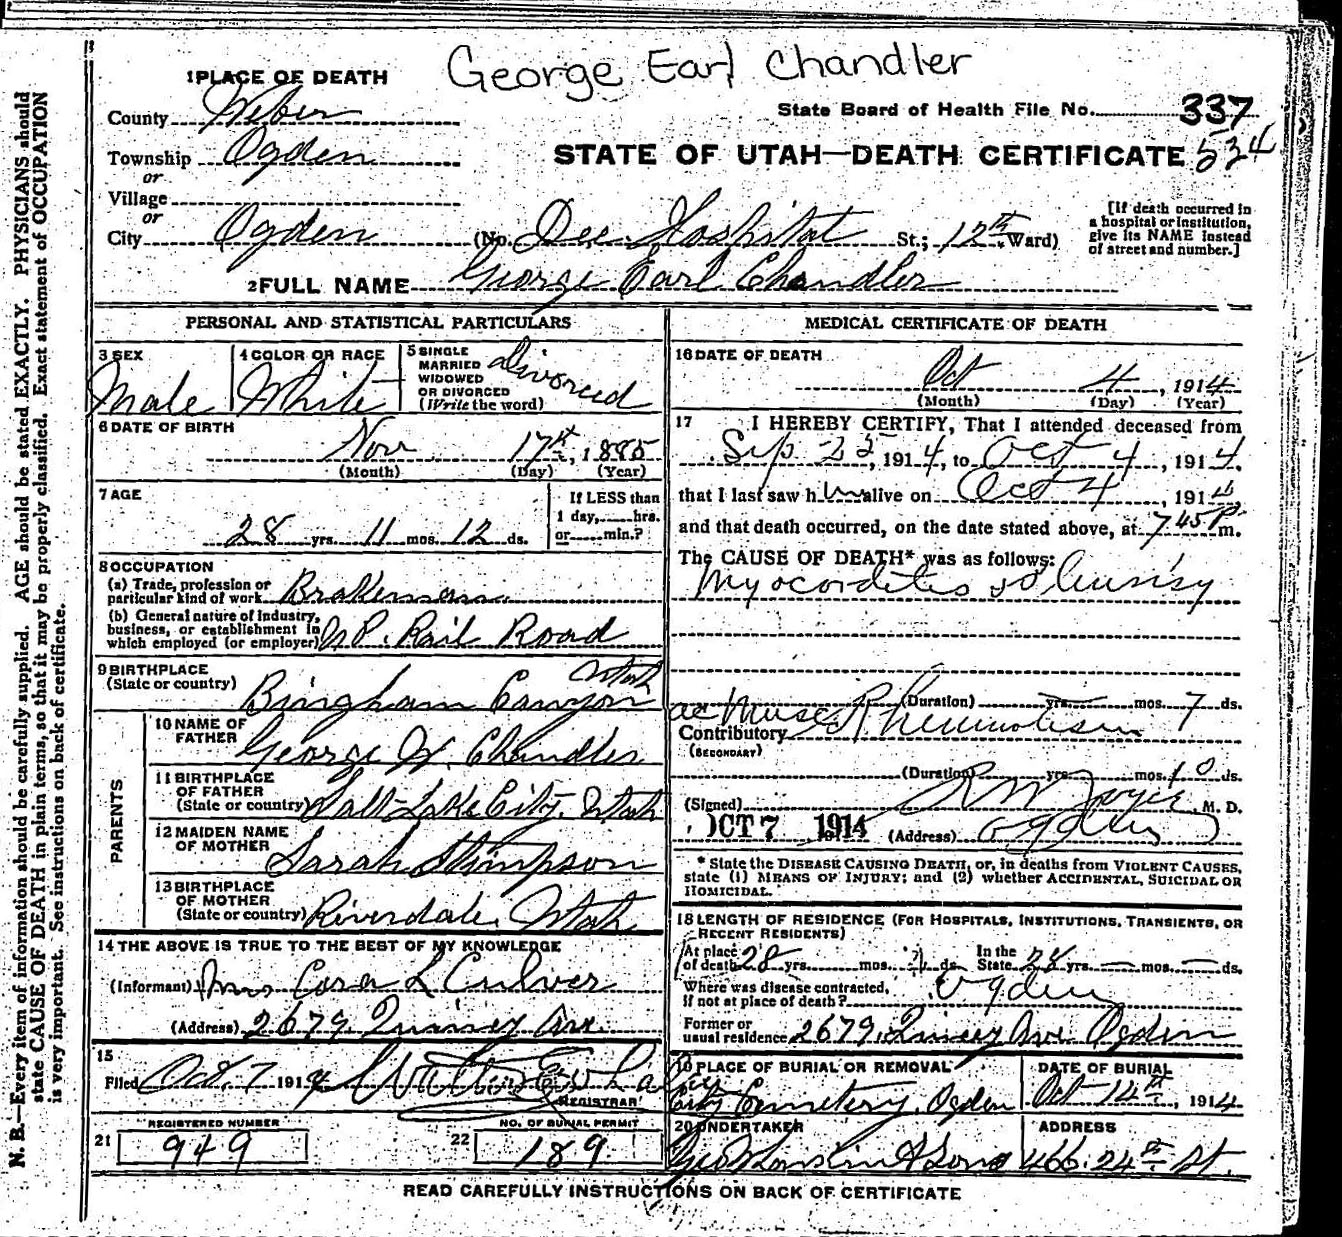 George Earl Chandler
1 PLACE OF DEATH
County Weber
State Board of Health File No. 337
Township Ogden
or
STATE OF UTAH—DEATH CERTIFICATE 534
Village
or
City Ogden (No. Dee Hospital St.; 12th Ward)
[If death occurred in a hospital or institution, give its NAME instead of street and number.]
2 FULL NAME George Earl Chandler
PERSONAL AND STATISTICAL PARTICULARS
3 SEX
Male
4 COLOR OR RACE
White
5 SINGLE
MARRIED
WIDOWED
OR DIVORCED
(Write the word)
Divorced
6 DATE OF BIRTH
Nov 17th, 1885
(Month) (Day) (Year)
7 AGE
28 yrs. 11 mos. 12 ds.
If LESS than
1 day, hrs.
or min.?
8 OCCUPATION
(a) Trade, profession or
particular kind of work Brakeman
(b) General nature of industry,
business, or establishment in
which employed (or employer) P. Rail Road
9 BIRTHPLACE
(State or country) Bingham Canyon Utah
PARENTS
10 NAME OF
FATHER George W. Chandler
11 BIRTHPLACE
OF FATHER
(State or country) Salt Lake City, Utah
12 MAIDEN NAME
OF MOTHER Sarah Stimpson
13 BIRTHPLACE
OF MOTHER
(State or country) Riverdale, Utah
14 THE ABOVE IS TRUE TO THE BEST OF MY KNOWLEDGE
(Informant) Mrs Cora L Culver
(Address) 2679 Quincy Ave.
15
Filed Oct. 7 1914
REGISTRAR
REGISTERED NUMBER
21 949
NO. OF BURIAL PERMIT
22 189
MEDICAL CERTIFICATE OF DEATH
16 DATE OF DEATH
Oct 4, 1914
(Month) (Day) (Year)
17 I HEREBY CERTIFY, That I attended deceased from
Sep 25, 1914, to Oct 4, 1914,
that I last saw him alive on Oct 4, 1914,
and that death occurred, on the date stated above, at 745 P m.
The CAUSE OF DEATH* was as follows:
Myocorditis
(Duration) yrs. mos. 7 ds.
Contributory Rheumatism
(SECONDARY)
(Duration) yrs. mos. 10 ds.
(Signed) M. D.
OCT 7 1914 (Address) Ogden
* State the DISEASE CAUSING DEATH, or, in deaths from VIOLENT CAUSES,
state (1) MEANS OF INJURY; and (2) whether ACCIDENTAL, SUICIDAL OR
HOMICIDAL.
18 LENGTH OF RESIDENCE (FOR HOSPITALS, INSTITUTIONS, TRANSIENTS, OR
RECENT RESIDENTS)
At place
of death 28 yrs. mos. ds. In the
State 28 yrs. mos. ds.
Where was disease contracted,
if not at place of death? Ogden
Former or
usual residence 2679 Quincy Ave. Ogden
19 PLACE OF BURIAL OR REMOVAL
City Cemetery, Ogden
DATE OF BURIAL
Oct 14th, 1914
20 UNDERTAKER
ADDRESS
466. 24th St.
READ CAREFULLY INSTRUCTIONS ON BACK OF CERTIFICATE
N. B.—Every item of information should be carefully supplied. AGE should be stated EXACTLY. PHYSICIANS should
state CAUSE OF DEATH in plain terms, so that it may be properly classified. Exact statement of OCCUPATION
is very important. See instructions on back of certificate.